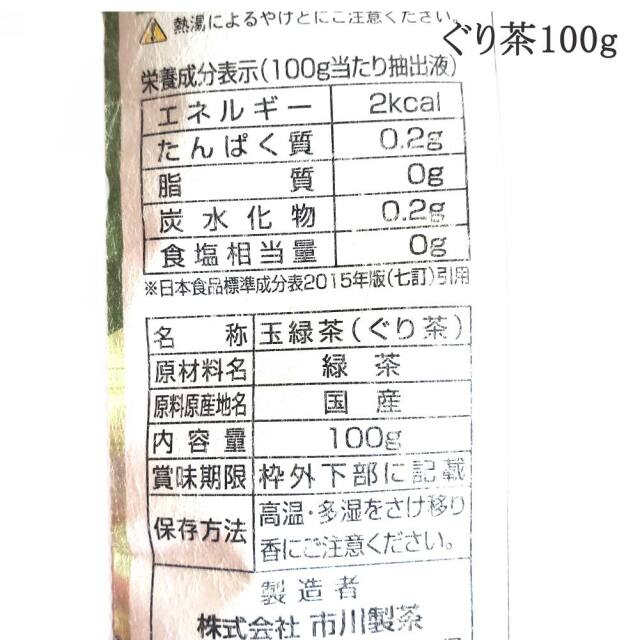 熱湯によるやけどにご注意ください。
ぐり茶100g
栄養成分表示(100g当たり抽出液)
エネルギー 2kcal
たんぱく質 0.2g
脂質 0g
炭水化物 0.2g
食塩相当量 0g
※日本食品標準成分表2015年版(七訂)引用
名称 玉緑茶(ぐり茶)
原材料名 緑茶
原料原産地名 国産
内容量 100g
賞味期限 枠外下部に記載
保存方法 高温・多湿をさけ移り
香にご注意ください。
製造者
株式会社 市川製茶